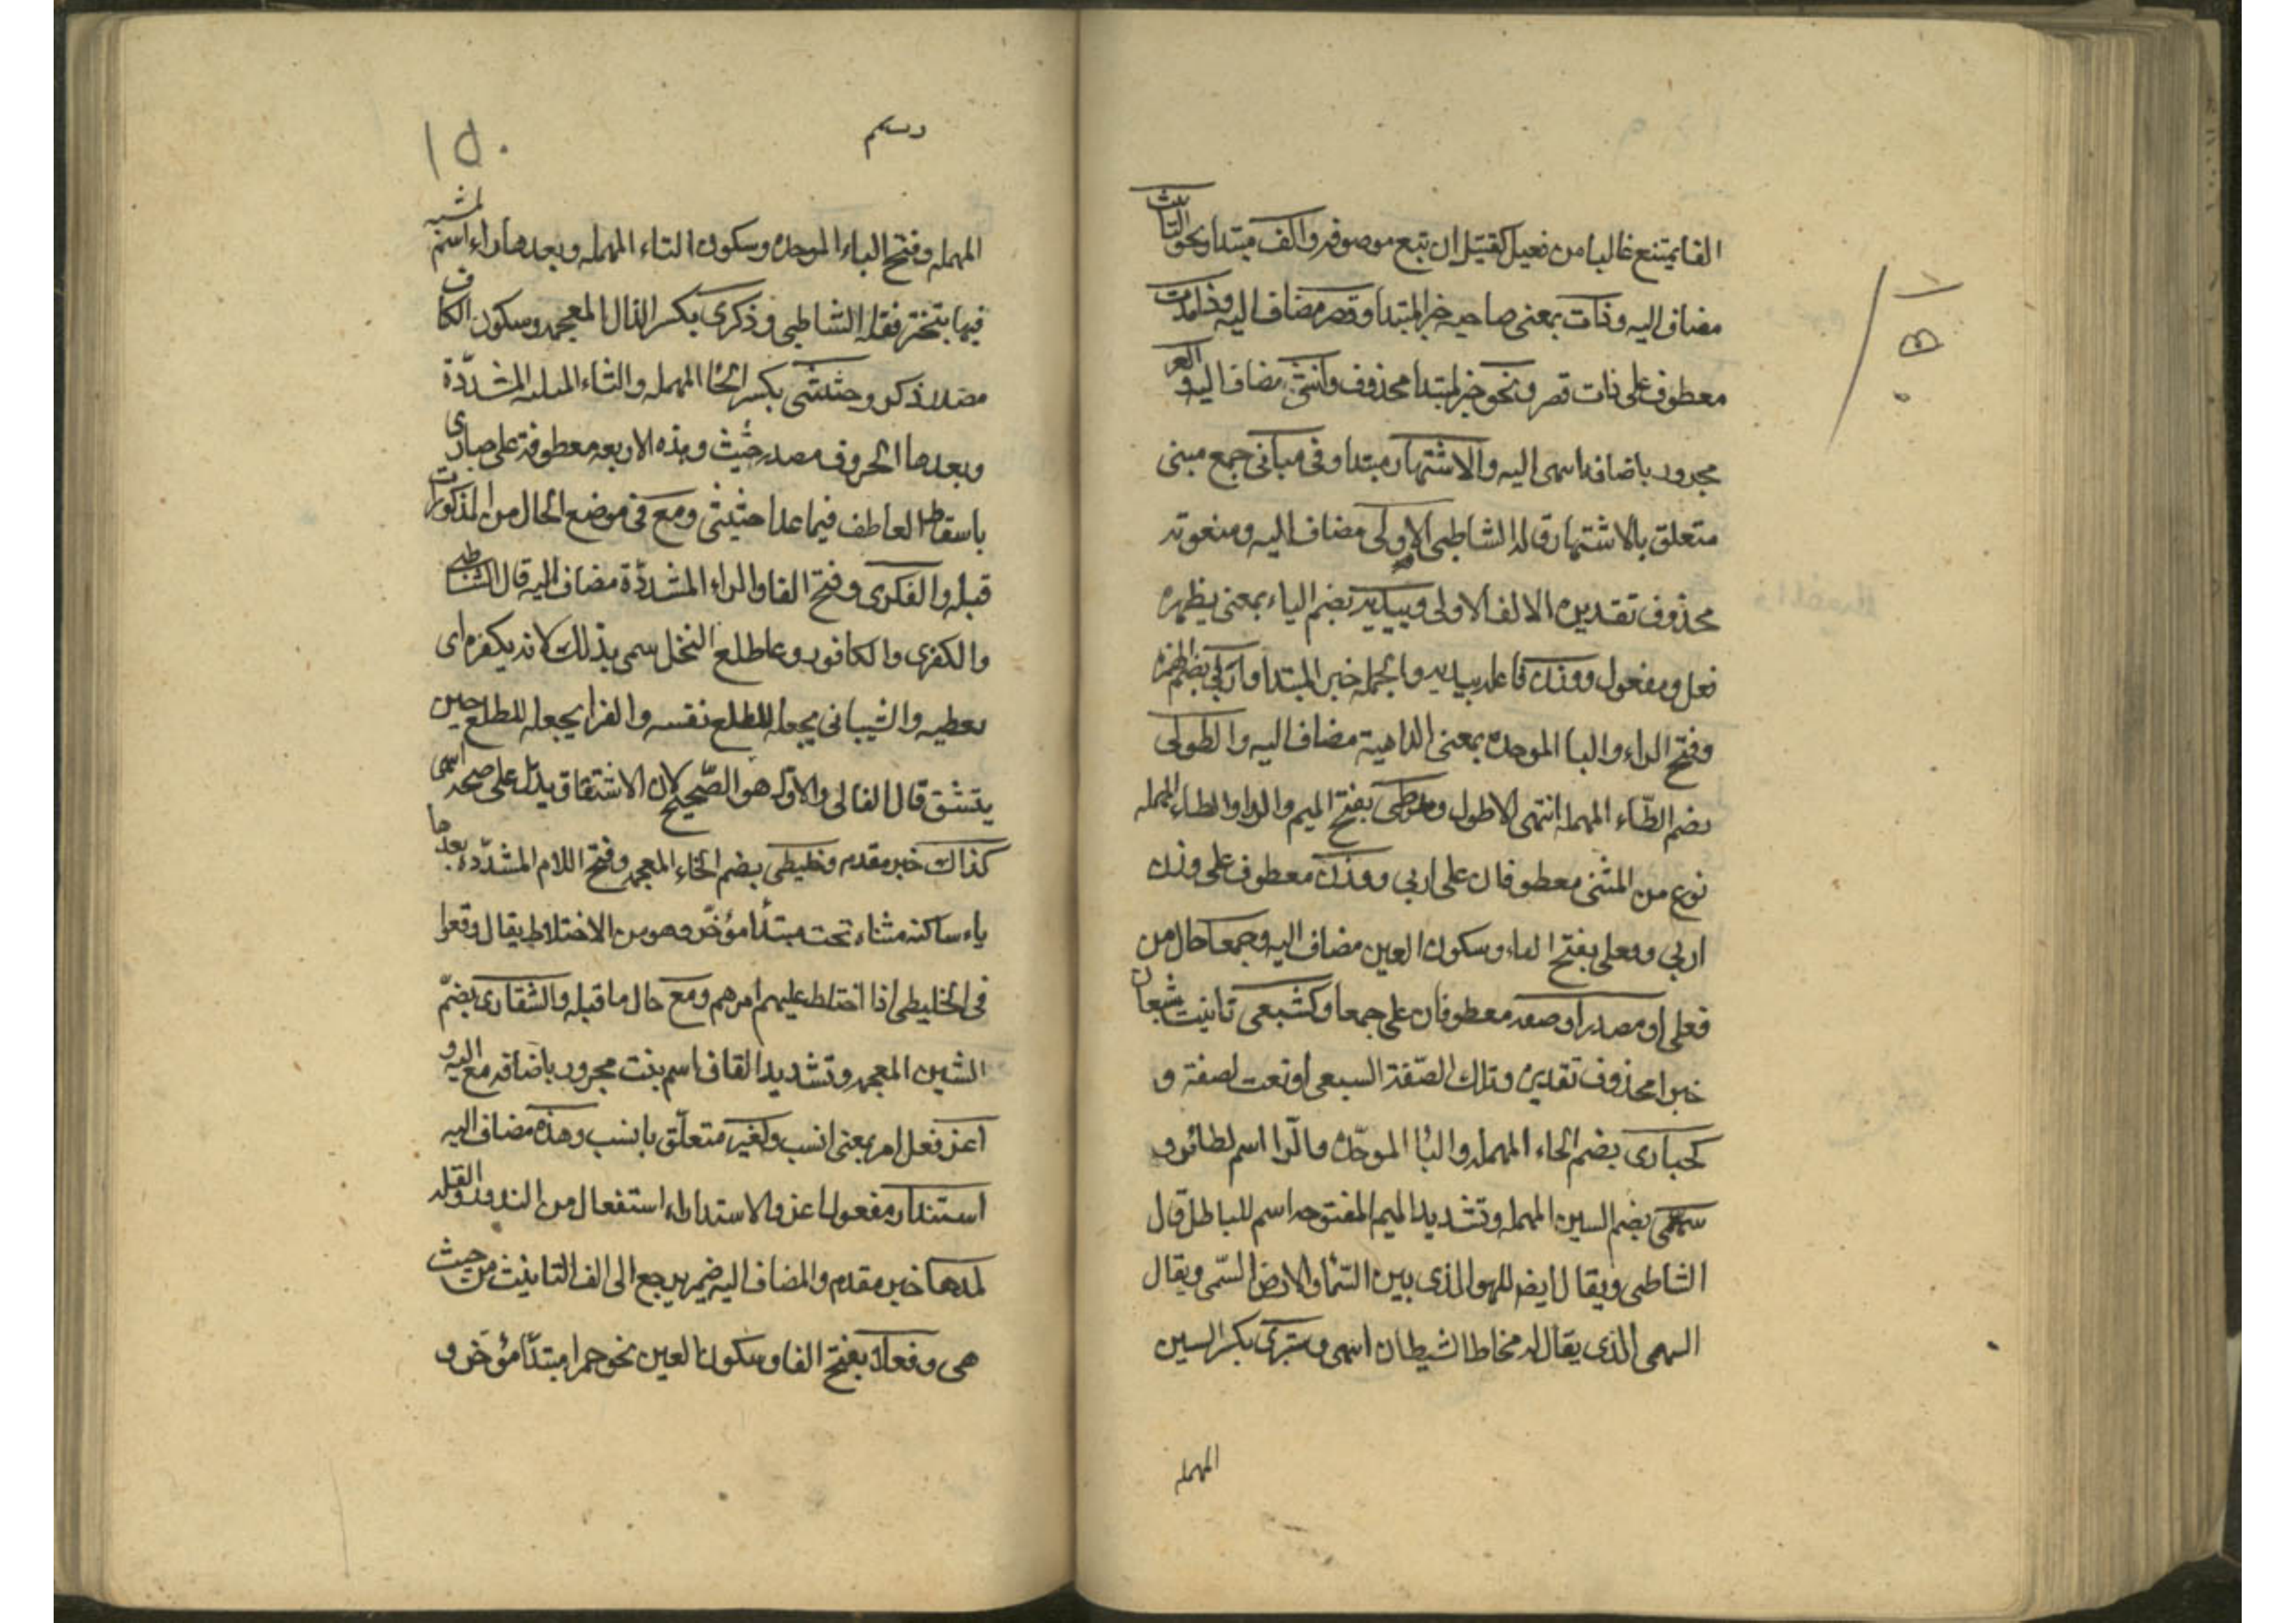 التا يمتنع غالبا من فعيل كقتيل ان تبع موصوفه والف مبتدا ونحو التانيث
مضاف اليه وذات بمعنى صاحبه خبر المبتدا وقصر مضاف اليه وذات مد
معطوف على ذات قصر ونحو خبر لمبتدا محذوف وانثى مضاف اليه والغر
مجرور باضافه اسمى اليه والاشتهار مبتدا وفى مبانى جمع مبنى
متعلق بالاشتهار قاله الشاطبى الاولى مضاف اليه ومنعوته
محذوف تقديره الالف الاولى ويبديه بضم الياء بمعنى يظهره
فعل ومفعول ووزن فاعل يبديه والجمله خبر المبتدا واربى بضم الهمزه
وفتح الراء والبا الموحده بمعنى الداهية مضاف اليه والطولى
بضم الطاء المهمله انثى الاطول ومرطى بفتح الميم والراء والطاء المهمله
نوع من المشى معطوفان على اربى ووزن معطوف على وزن
اربى وفعلى بفتح الفاء وسكون العين مضاف اليه وجمعا حال من
فعلى او مصدرا وصفه معطوفان على جمعا وكشبعى تانيث شبعان
خبرا محذوف تقديره وتلك الصفة الشبعى او نعت لصفة و
كحبارى بضم الحاء المهمله والبا الموحده والرا اسم لطائر و
سمهى بضم السين المهمله وتشديد الميم المفتوحه اسم للباطل قال
الشاطبى ويقال ايض للهوا الذى بين السما والارض السمى ويقال
السهمى الذى يقال له مخاط الشيطان انتهى وسبطرى بكسر السين
المهمله
١٥٠
المهمله وفتح الباء الموحده وسكون الثاء المهمله وبعدها راء اسم لمشيه
فيها تبختر نقله الشاطبى وذكرى بكسر الذال المعجمه وسكون الكاف
مصدر ذكر وحثيثى بكسر الحا المهمله والثاء المثلثه المشددة
وبعدها الحروف مصدر حثيث وهذه الاربعه معطوفة على حبارى
باسقاط العاطف فيما عدا حثيثى ومع فى موضع الحال من المذكورات
قبله والكفرى وفتح الفا والراء المشددة مضاف اليه قال الشاطبى
والكفرى والكافور وعا طلع النخل سمى بذلك لانه يكفره اى
يغطيه والشيبانى يجعله للطلع نفسه والفرا يجعله للطلع حين
ينشق قال القالى والاول هو الصحيح لان الاشتقاق يدل على صحه انتهى
كذاك خبر مقدم وخليطى بضم الخاء المعجمه وفتح اللام المشدده بعدها
ياء ساكنه مثناه تحت مبتدأ مؤخر وهو من الاختلاط يقال وقعوا
فى الخليطى اذا اختلط عليهم امرهم ومع حال ما قبله والشقارى بضم
الشين المعجمه وتشديد القاف اسم نبت مجرور باضافه مع اليه و
اعز فعل امر بمعنى انسب ولغير متعلق بانسب وهذه مضاف اليه
استندارا مفعول اعز والاستندار استفعال من الندور والقله
لمدها خبر مقدم والمضاف اليه ضمير يرجع الى الف التانيث من حيث
هى وفعلاء بفتح الفا وسكون العين نحو حمرا مبتدأ مؤخر و